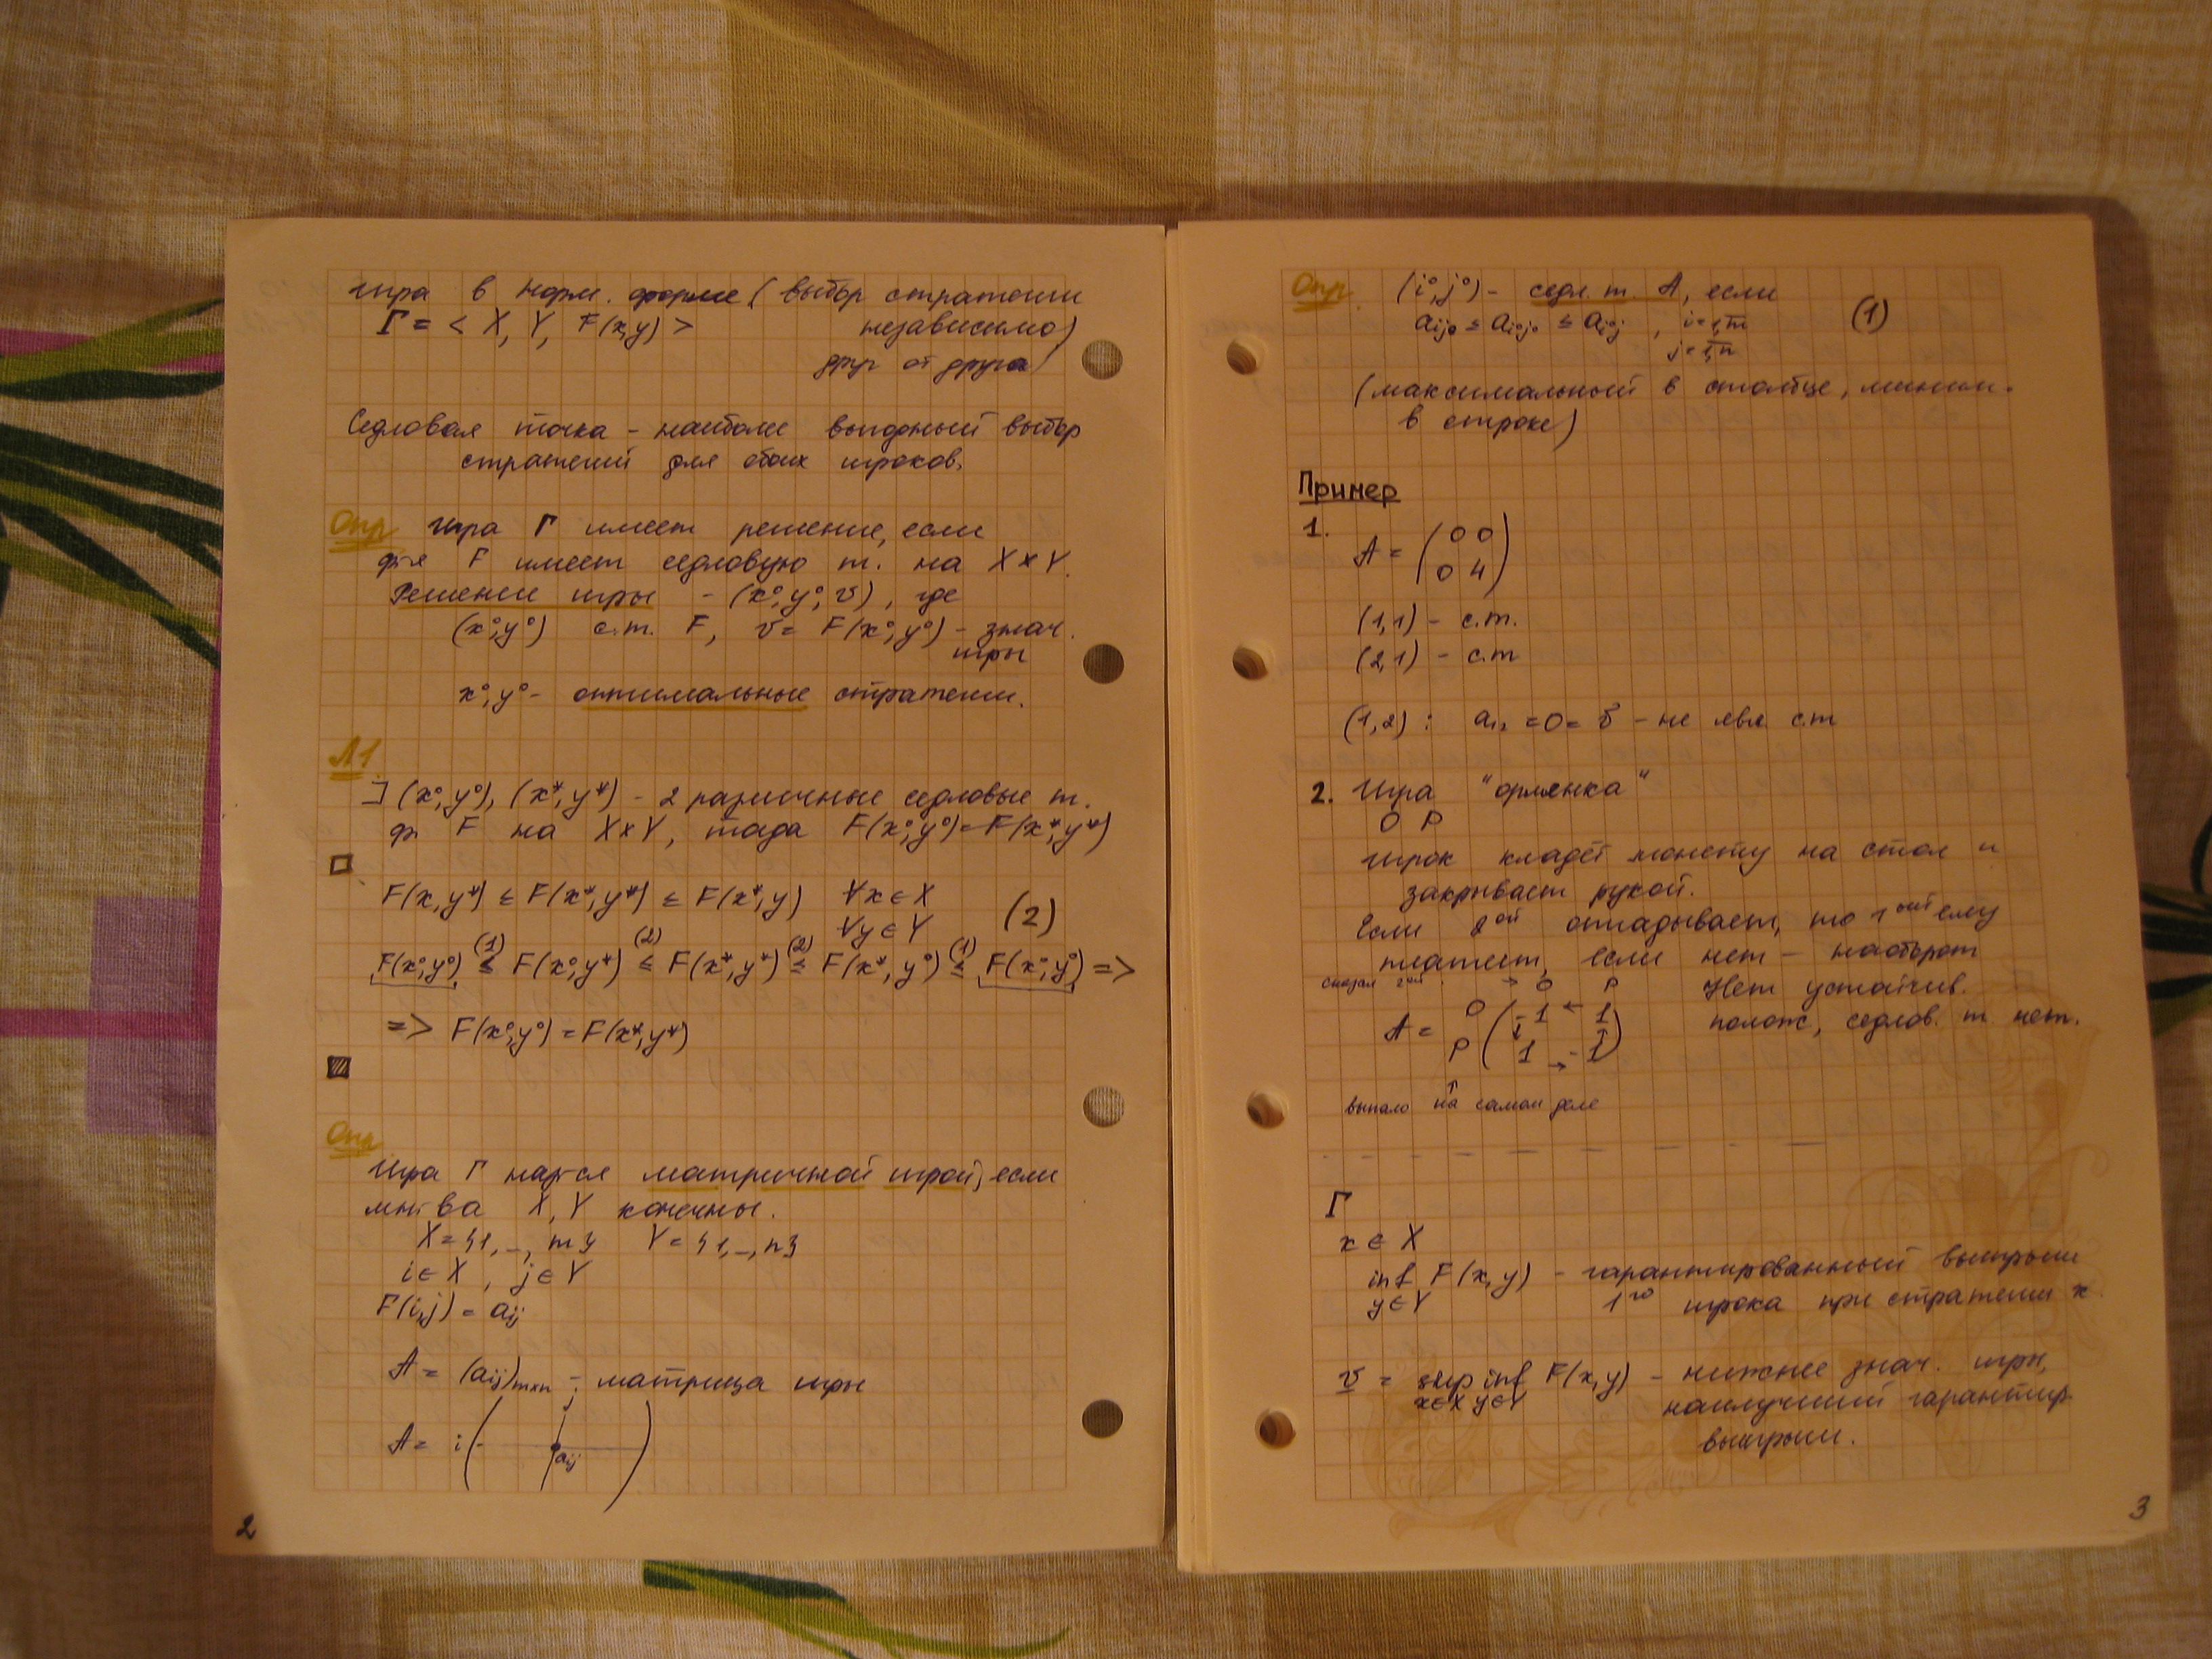 Игра в норм. форме (выбор стратегии
Γ = < X, Y, F(x,y) > независимо
друг от друга)
Седловая точка – наиболее выгодный выбор
стратегий для обоих игроков.
Опр Игра Γ имеет решение, если
ф-я F имеет седловую т. на X×Y.
Решение игры – (x⁰, y⁰, v), где
(x⁰, y⁰) с.т. F, v = F(x⁰, y⁰) – знач.
игры
x⁰, y⁰ – оптимальные стратегии.
Л1
∃ (x⁰, y⁰), (x*, y*) – 2 различные седловые т.
ф. F на X×Y, тогда F(x⁰, y⁰) = F(x*, y*)
□
F(x, y*) ≤ F(x*, y*) ≤ F(x*, y) ∀x ∈ X
∀y ∈ Y (2)
F(x⁰, y⁰) ≤(1) F(x⁰, y*) ≤(2) F(x*, y*) ≤(2) F(x*, y⁰) ≤(1) F(x⁰, y⁰) =>
=> F(x⁰, y⁰) = F(x*, y*)
■
Опр
Игра Γ наз-ся матричной игрой, если
мн-ва X, Y конечны.
X = {1, ..., m} Y = {1, ..., n}
i ∈ X, j ∈ Y
F(i,j) = aij
A = (aij)m×n – матрица игры
j
A = i ( aij )
2
Опр. (i⁰, j⁰) – седл. т. A, если
aij⁰ ≤ ai⁰j⁰ ≤ ai⁰j, i = 1,m (1)
j = 1,n
(максимальный в столбце, миним.
в строке)
Пример
1.
A = ( 0 0
0 4 )
(1,1) – с.т.
(2,1) – с.т
(1,2) : a12 = 0 = v – не явл с.т
2. Игра "орлянка"
О Р
Игрок кладёт монету на стол и
закрывает рукой.
Если 2ой отгадывает, то 1ый ему
платит, если нет – наоборот
сказал 2ой → О Р Нет устойчив.
A = О ( -1 ← 1 полож, седлов. т нет.
Р ( 1 → -1 )
выпало на самом деле
Γ
x ∈ X
inf F(x,y) – гарантированный выигрыш
y∈Y 1го игрока при стратегии x
v = sup inf F(x,y) – нижнее знач. игры,
x∈X y∈Y наилучший гарантир.
выигрыш.
3